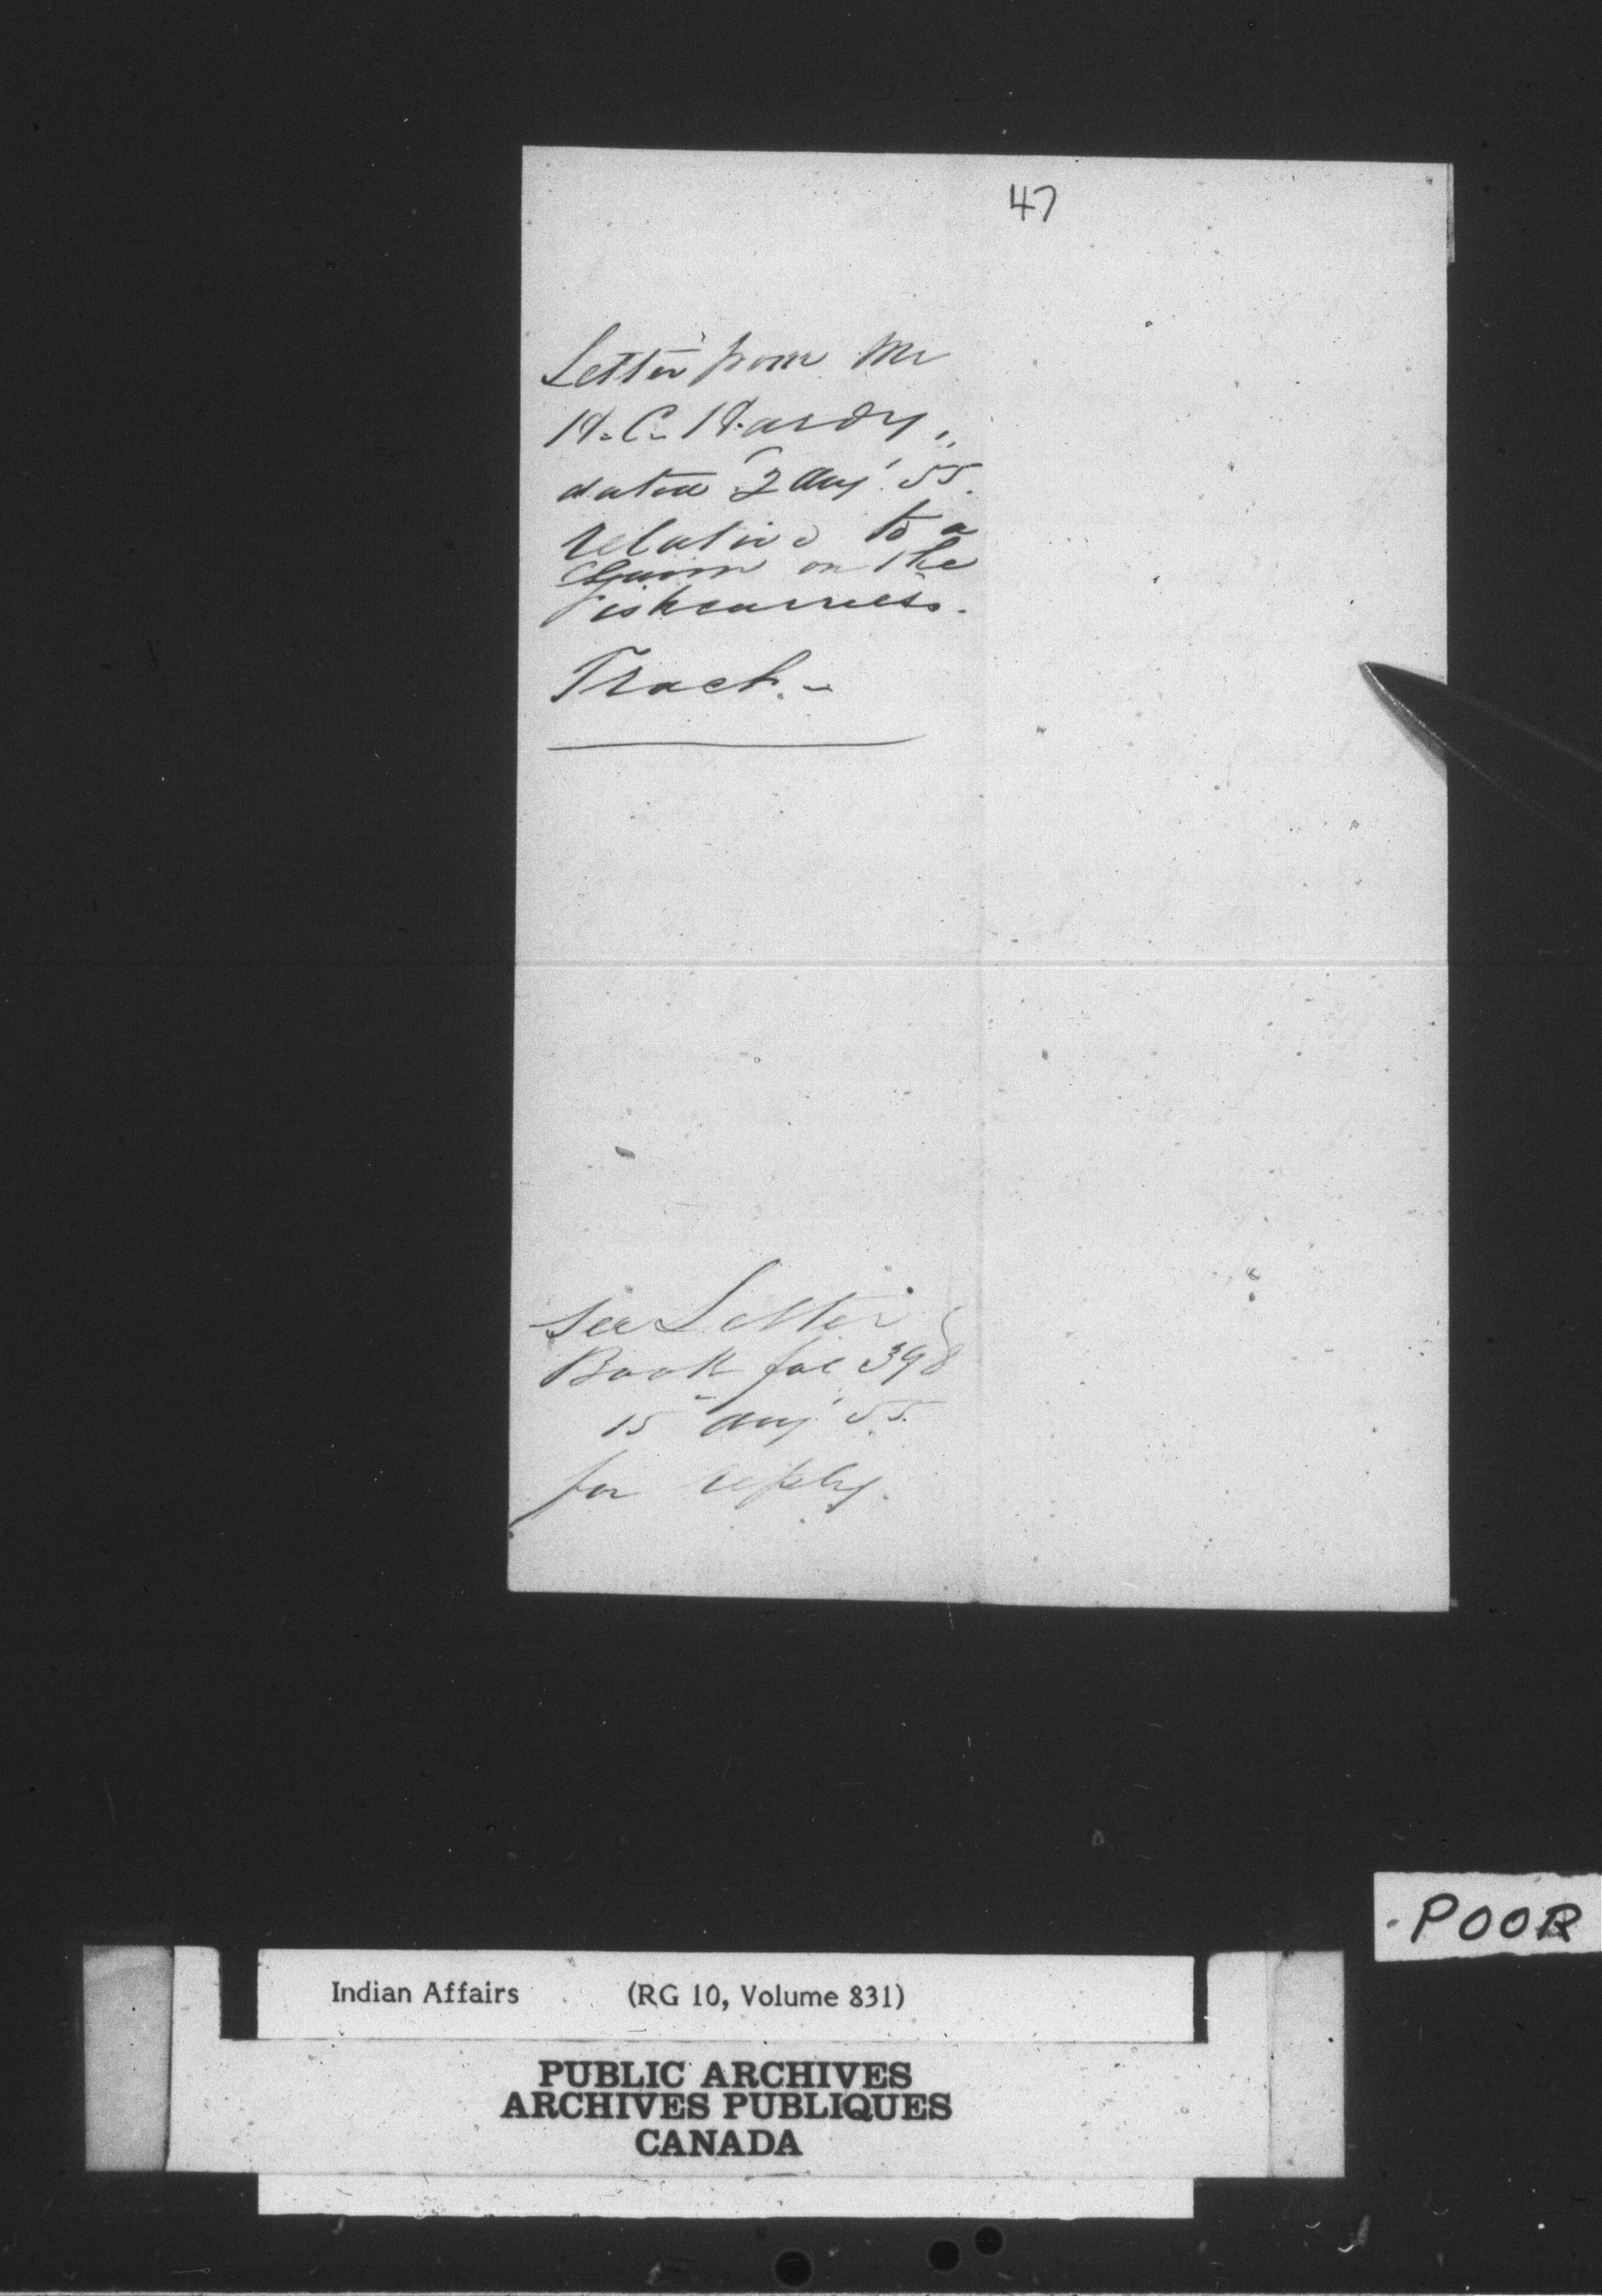 47
Letter from Mr
H. C. Hardy,
dated 2 Aug' 55.
relative to a
on the
Fishcarriers.
Tract.-
See Letter
Book fol 398
15 Aug' 55.
for reply.
POOR
Indian Affairs (RG 10, Volume 831)
PUBLIC ARCHIVES
ARCHIVES PUBLIQUES
CANADA